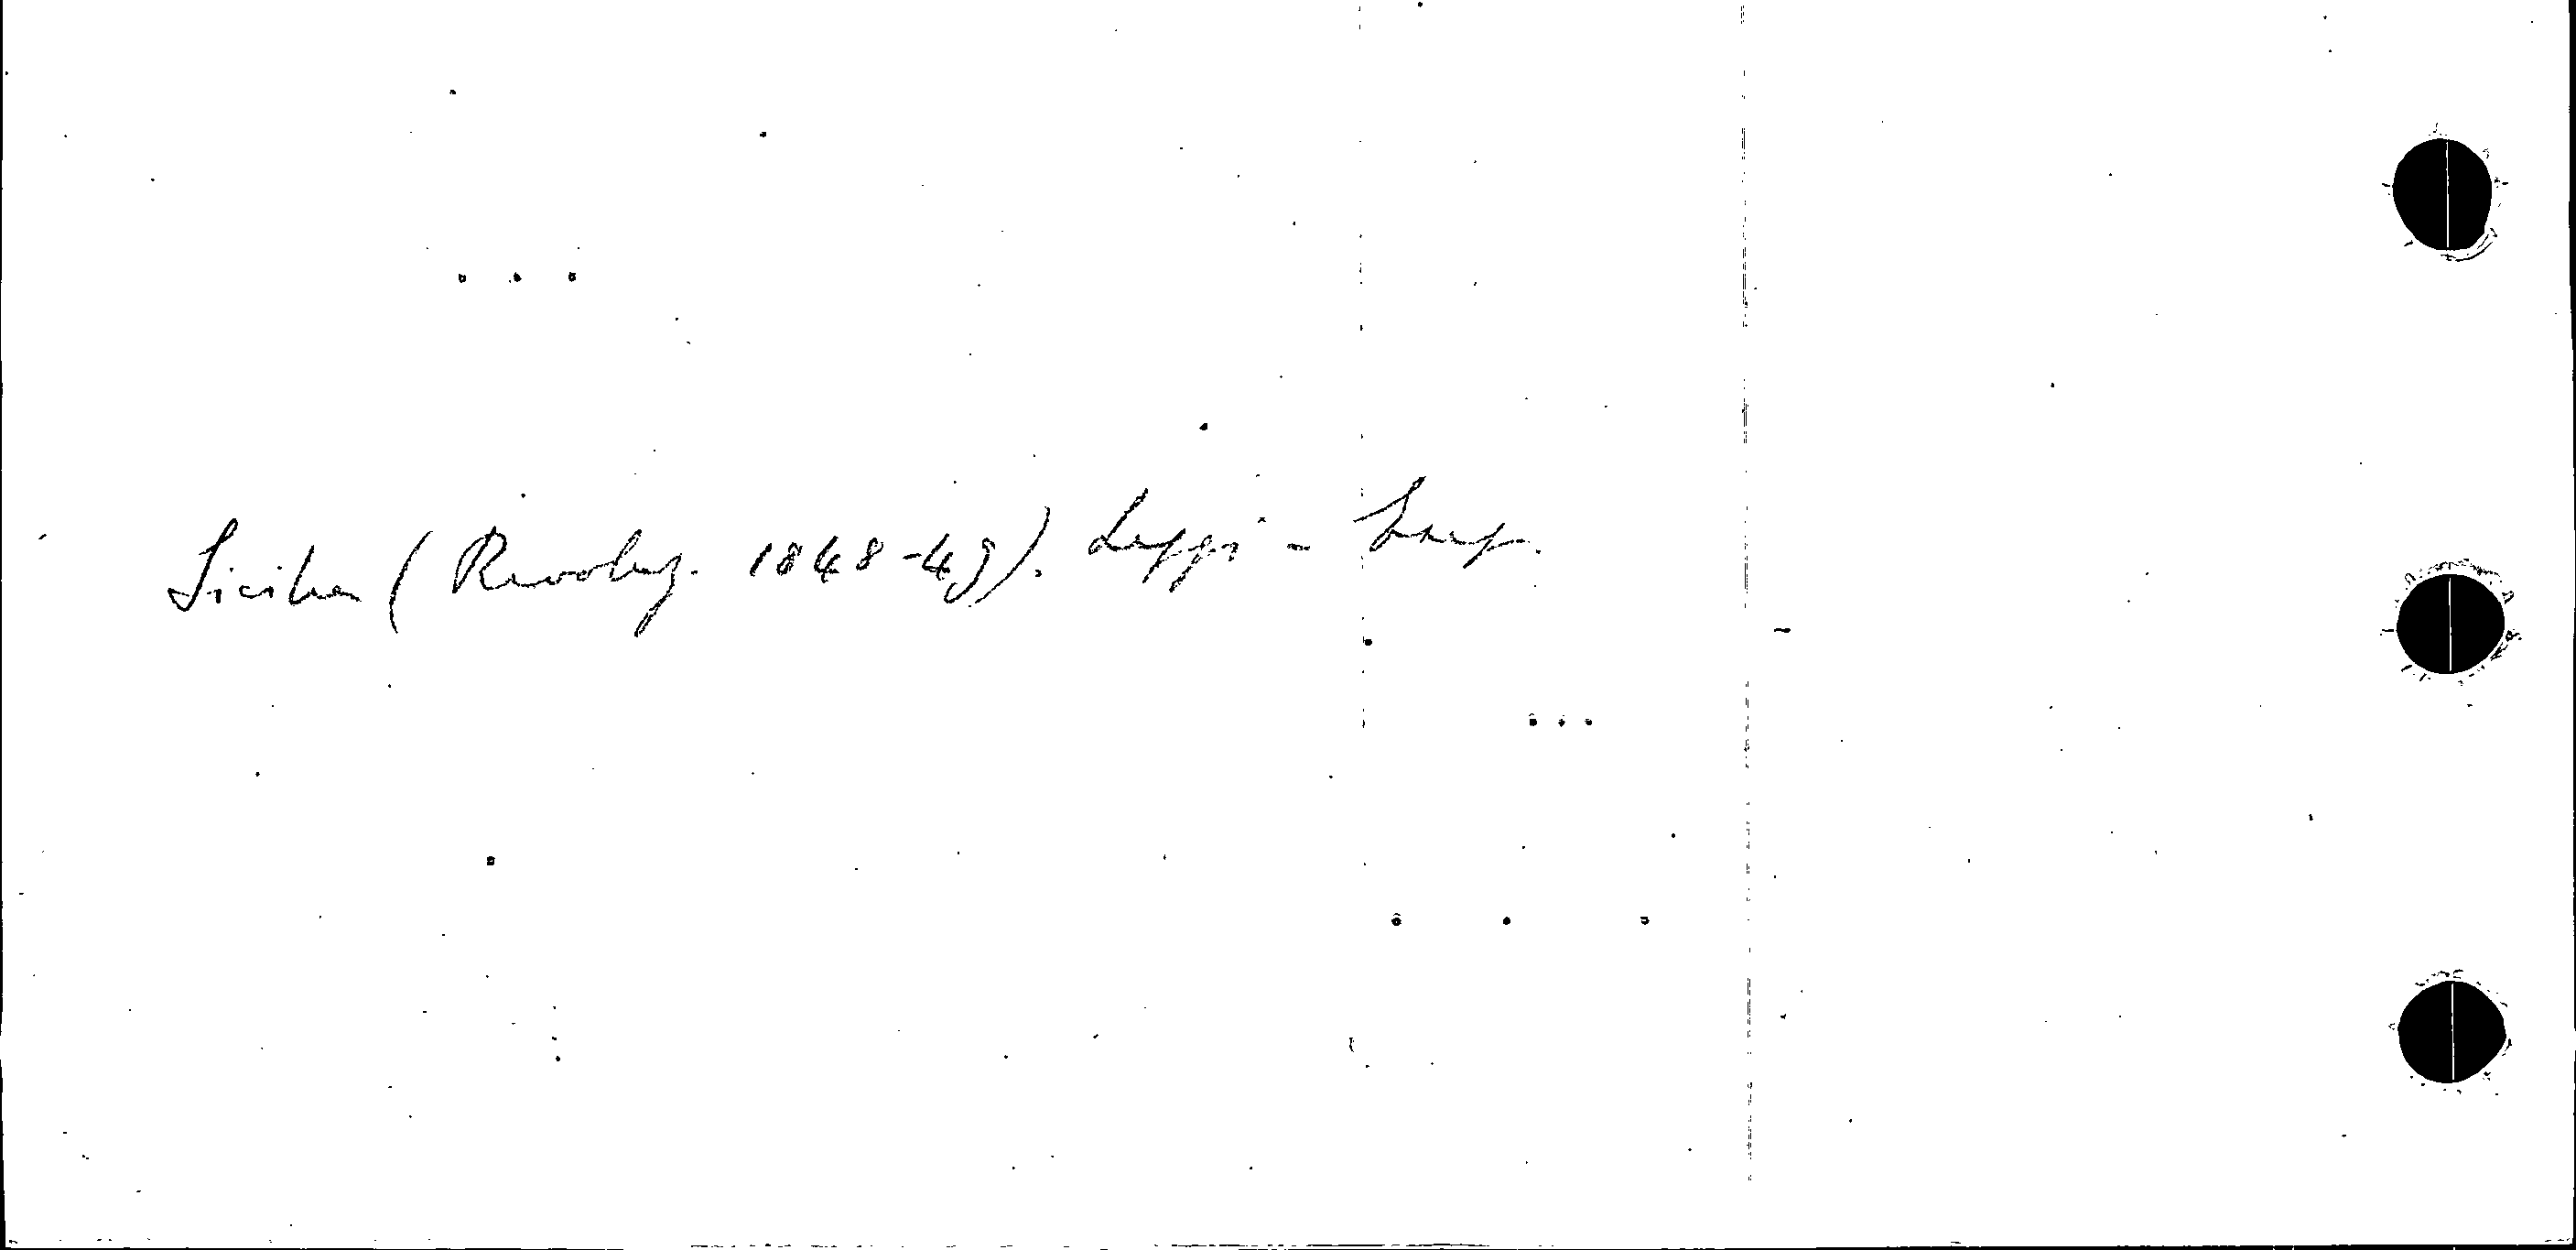 Sicilia (Rivoluz. 1848-49). Leggi -